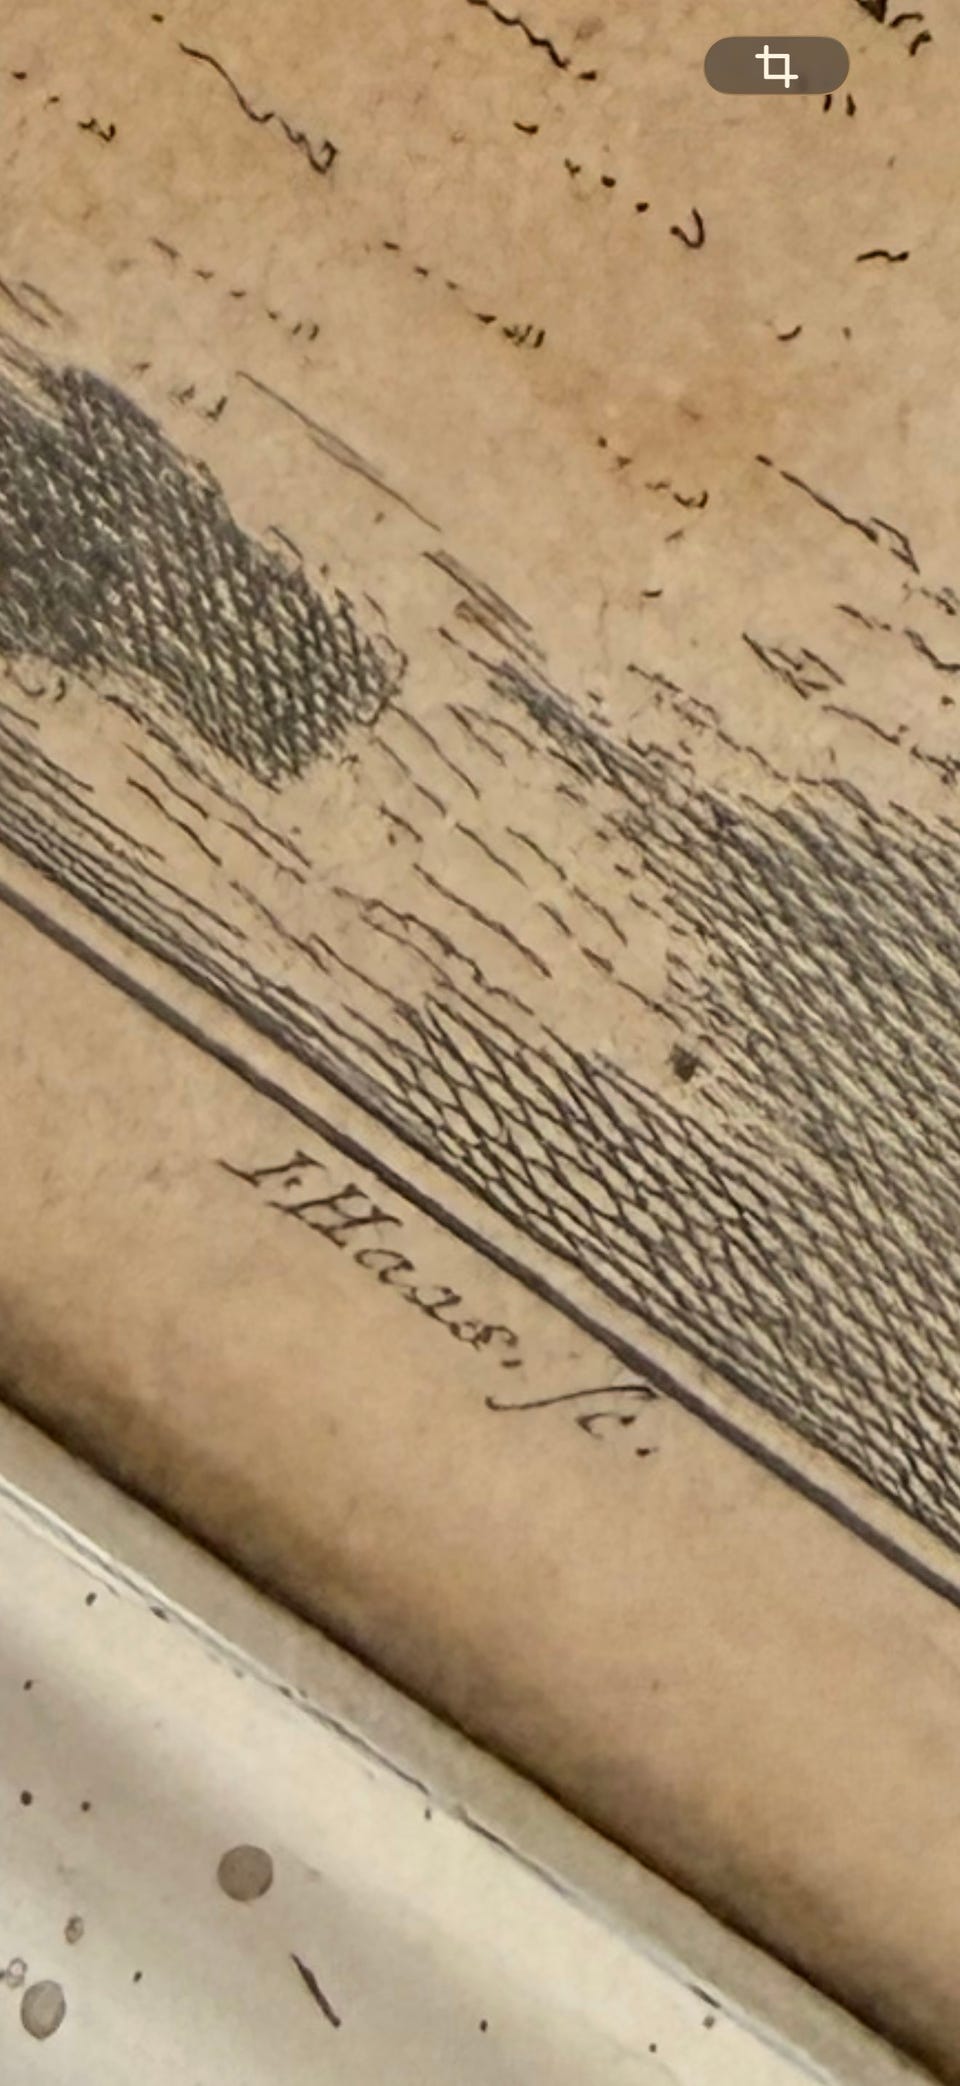 I. Haas. sc.